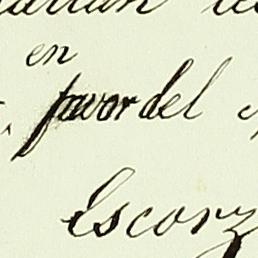 en
favor del
Escorz